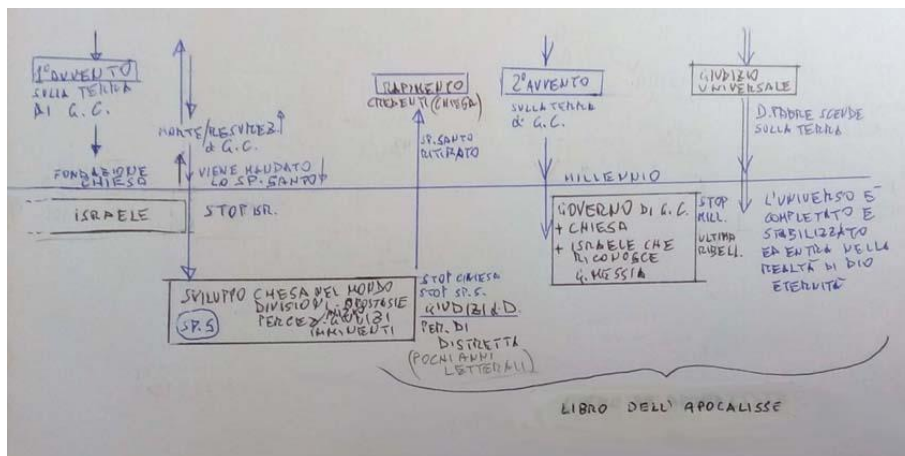 1° AVVENTO
SULLA TERRA
DI G.C.
FONDAZIONE
CHIESA
ISRAELE
MORTE/RESURREZ.
di G.C.
VIENE MANDATO
LO SP. SANTO
STOP ISR.
SVILUPPO CHIESA NEL MONDO
DIVISIONI. APOSTASIE
GIUDIZI
IMMINENTI
SP.S
RAPIMENTO
CREDENTI (CHIESA)
SP. SANTO
RITIRATO
STOP CHIESA
STOP SP.S.
GIUDIZI d. D.
PER. DI
DISTRETTA
(POCHI ANNI
LETTERALI)
2° AVVENTO
SULLA TERRA
di G.C.
MILLENNIO
GOVERNO DI G.C.
+ CHIESA
+ ISRAELE CHE
RICONOSCE
G. MESSIA
STOP
MILL.
ULTIMA
RIBELL.
GIUDIZIO
UNIVERSALE
D. PADRE SCENDE
SULLA TERRA
L'UNIVERSO È
COMPLETATO E
STABILIZZATO
ED ENTRA NELLA
REALTÀ DI DIO
ETERNITÀ
LIBRO DELL'APOCALISSE